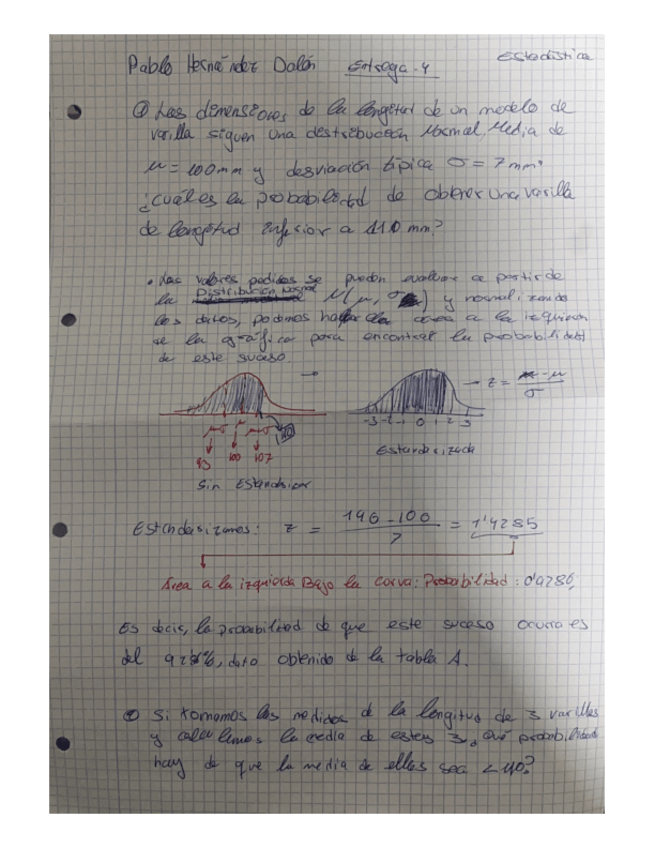 Pablo Hernández Dolón Entrega-4 Estadística
① Las dimensiones de la longitud de un modelo de
varilla siguen una destribución Normal, Media de
μ = 100 mm y desviación típica σ = 7 mm.
¿cuál es la probabilidad de obtener una varilla
de longitud inferior a 110 mm?
• Los valores pedidos se pueden evaluar a partir de
la N(μ, σ) y normalizando
los datos, podemos hallar el area a la izquierda
de la gráfica para encontrar la probabilidad
de este suceso.
→ z = x - μ / σ
-3 -2 -1 0 1 2 3
μ-σ μ μ+σ 110
93 100 107
Estandarizada
Sin Estandarizar
Estandarizamos: z = 110 - 100 / 7 = 1'4285
Area a la izquierda Bajo la curva: Probabilidad: 0'9236
Es decir, la probabilidad de que este suceso ocurra es
del %, dato obtenido de la tabla A.
② Si tomamos las medidas de la longitud de 3 varillas
y calculamos la media de estas 3, Qué probabilidad
hay de que la media de ellas sea < 110?